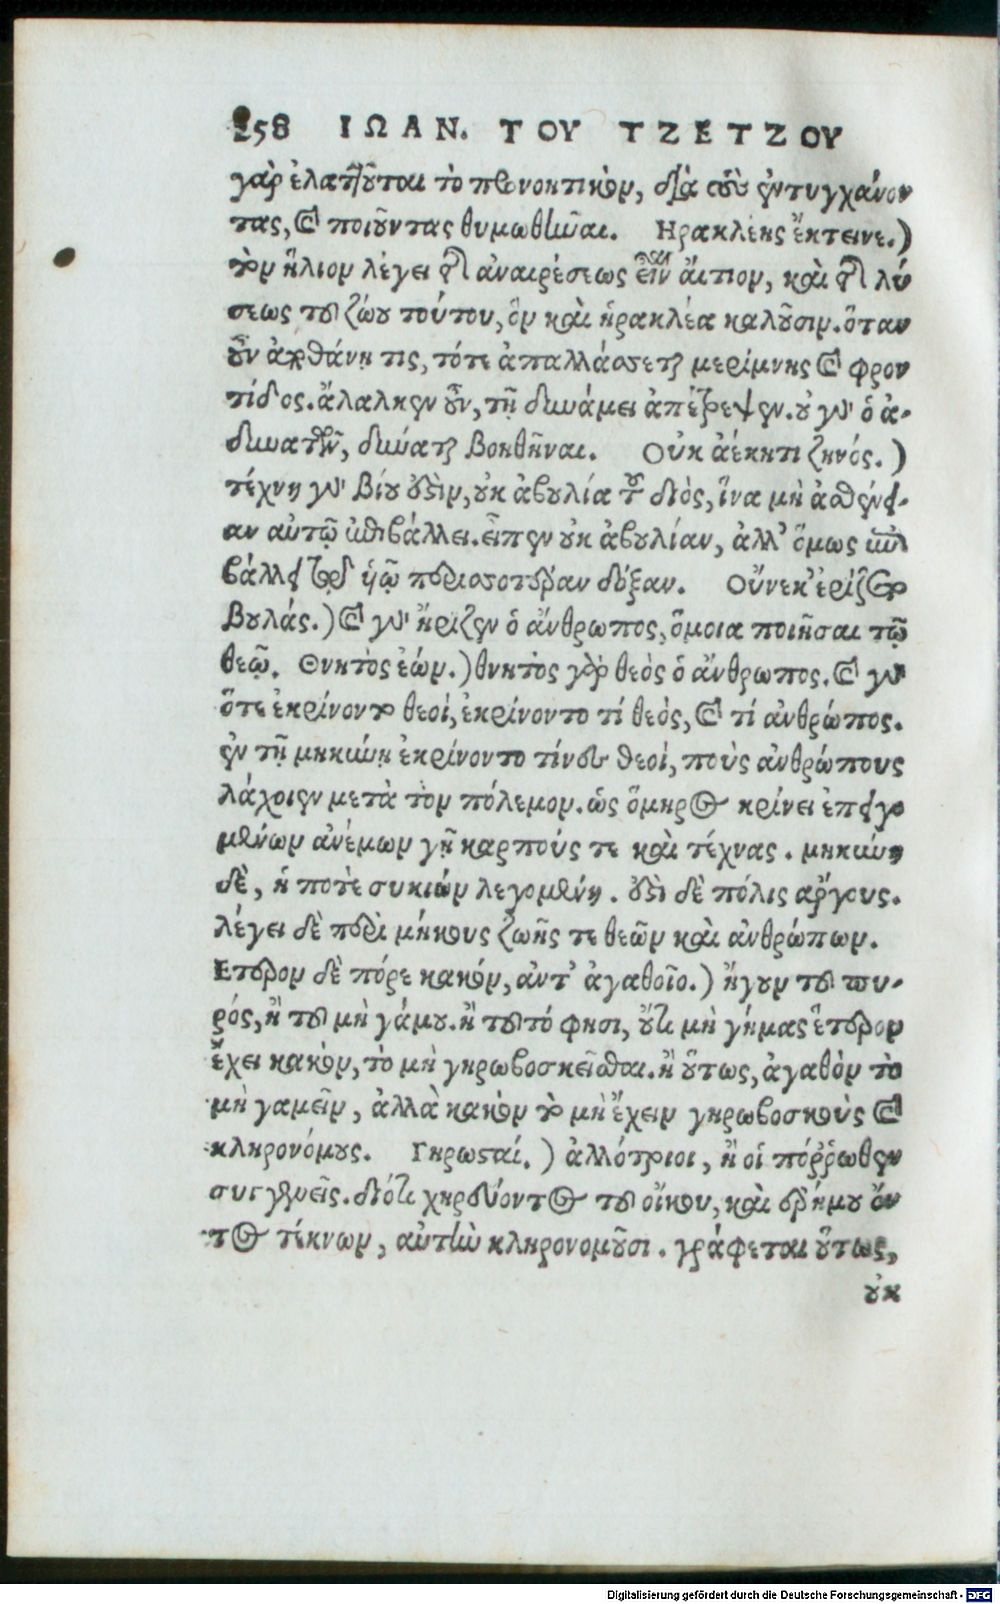 258 ΙΩΑΝ. ΤΟΥ ΤΖΕΤΖΟΥ
γὰρ ἐλαττοῦται τὸ πρνοητικὸν, διὰ τοὺς ἐντυγχάνον
τας, καὶ ποιοῦντας θυμωθῆναι. Ηρακλέης ἔκτεινε.)
τὸν ἥλιον λέγει τῆς ἀναιρέσεως εἶναι ἄιτιον, καὶ τῆς λύ
σεως τοῦ ζώου τούτου, ὃν καὶ ἡρακλέα καλοῦσιν. ὅταν
οὖν ἀποθάνῃ τις, τότε ἀπαλλάσσεται μερίμνης καὶ φρον
τίδος. ἄλαλκεν οὖν, τῇ δυνάμει ἀπέτρεψεν. οὐ γὰρ ὁ ἀ-
δυνατῶν, δύναται βοηθῆναι. Οὐκ ἀέκητι ζηνός.)
τέχνη γὰρ βίου ἐστὶν, οὐκ ἀβουλία τοῦ διὸς, ἵνα μὴ ἀσθένει-
αν αὐτῷ ὑποβάλλει. εἶπεν οὐκ ἀβουλίαν, ἀλλ' ὅμως
βάλλει περισσοτέραν δόξαν. Οὕνεκ' ἐρίζετο
βουλάς.) καὶ γὰρ ἤριζεν ὁ ἄνθρωπος, ὅμοια ποιῆσαι τῷ
θεῷ. Θνητὸς ἐών.) θνητὸς γὰρ θεὸς ὁ ἄνθρωπος. καὶ γὰρ
ὅτε ἐκρίνοντο θεοί, ἐκρίνοντο τί θεὸς, καὶ τί ἀνθρώπος.
ἐν τῇ μηκώνῃ ἐκρίνοντο τίνες θεοί, ποὺς ἀνθρώπους
λάχοιεν μετὰ τὸν πόλεμον. ὡς ὅμηρος κρίνει ἐπειγο
μένων ἀνέμων γῆ καρπούς τε καὶ τέχνας. μηκώνη
δὲ, ἡ ποτὲ συκιὼν λεγομένη. ἐστὶ δὲ πόλις ἄργους.
λέγει δὲ περὶ μήκους ζωῆς τε θεῶν καὶ ἀνθρώπων.
Ετερον δὲ πόρε κακόν, ἀντ' ἀγαθοῖο.) ἤγουν τοῦ πυ-
ρός, ἢ τοῦ μὴ γάμου. ἢ τοῦτό φησι, ὅτι μὴ γήμας ἕτερον
ἔχει κακὸν, τὸ μὴ γηρωβοσκεῖσθαι. ἢ οὕτως, ἀγαθὸν τὸ
μὴ γαμεῖν, ἀλλὰ κακὸν τὸ μὴ ἔχειν γηρωβοσκοὺς καὶ
κληρονόμους. Γηρωσταί.) ἀλλότριοι, ἢ οἱ πόῤῥωθεν
συγγενεῖς. διότι χηρεύοντος τοῦ οἴκου, καὶ ἐρήμου ὄν
τος τέκνων, αὐτὴν κληρονομοῦσι. γράφεται οὕτως,
οὐκ
Digitalisierung gefördert durch die Deutsche Forschungsgemeinschaft - DFG